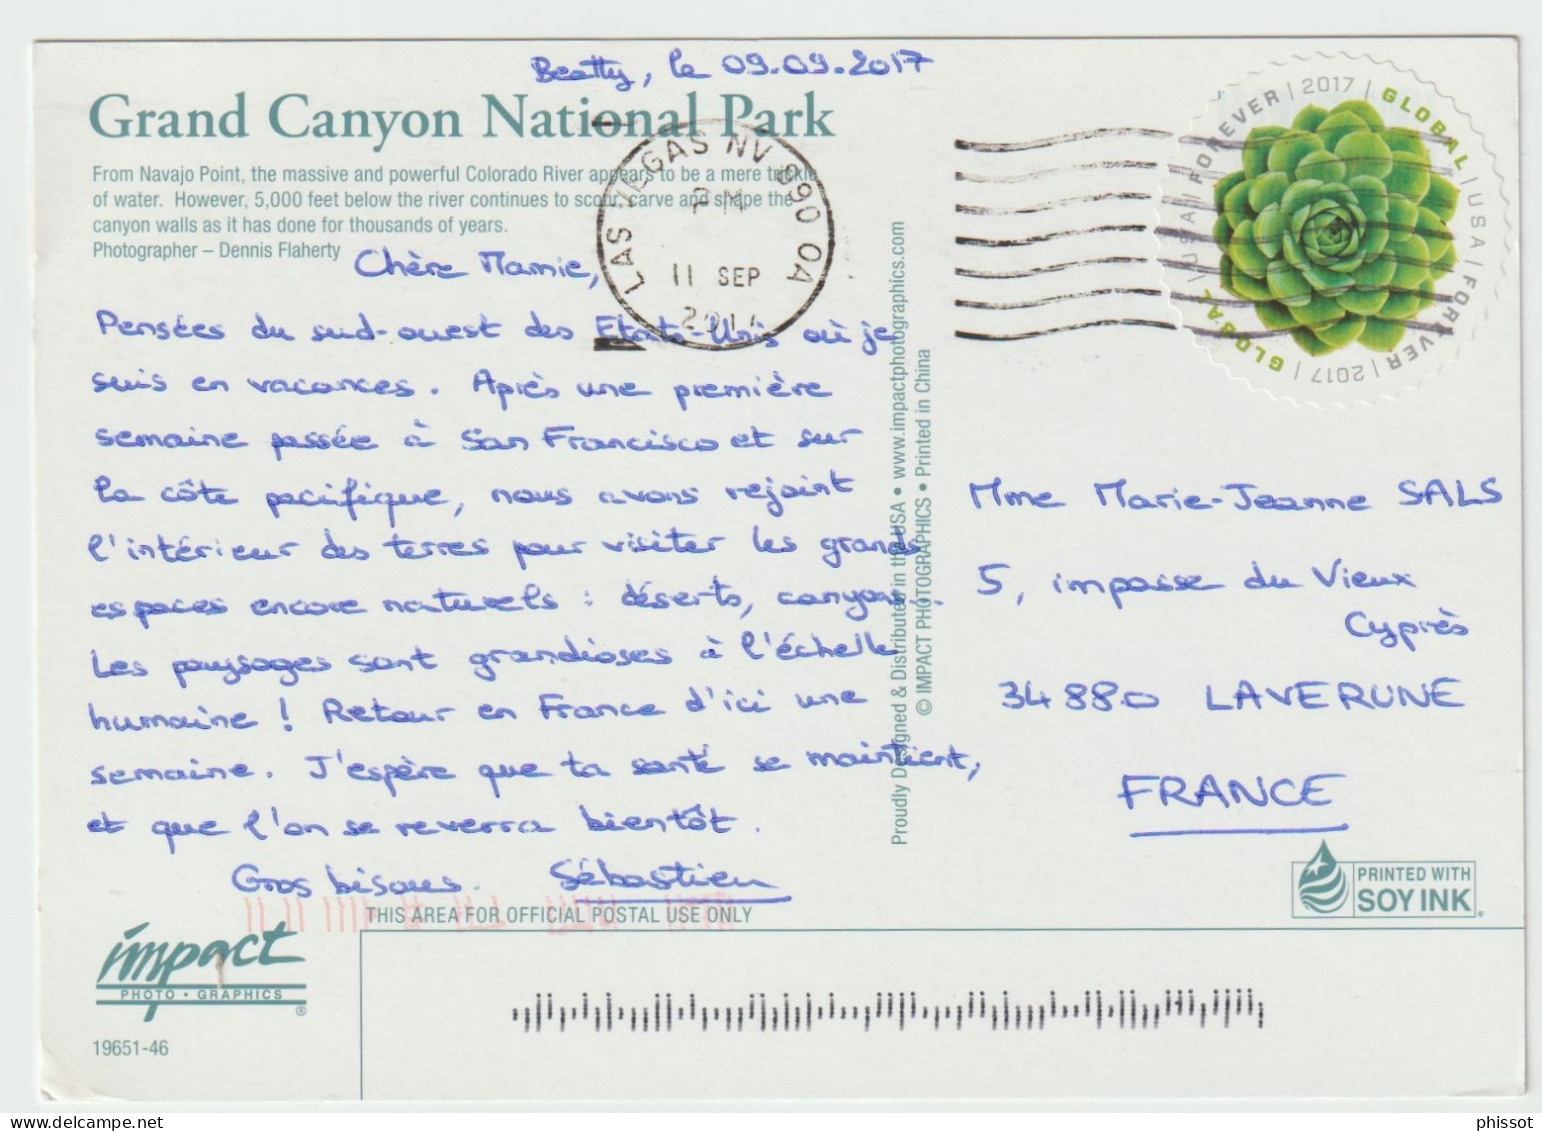 Beatty, le 09.09.2017
Grand Canyon National Park
From Navajo Point, the massive and powerful Colorado River appears to be a mere trickle
of water. However, 5,000 feet below the river continues to scour, carve and shape the
canyon walls as it has done for thousands of years.
Photographer – Dennis Flaherty
LAS VEGAS NV 890 OA
PM
11 SEP
2017
USA | FOREVER | 2017 | GLOBAL | USA | FOREVER | 2017 | GLOBAL
Chère Mamie,
Pensées du sud-ouest des Etats-Unis où je
suis en vacances. Après une première
semaine passée à San Francisco et sur
la côte pacifique, nous avons rejoint
l'intérieur des terres pour visiter les grands
espaces encore naturels : déserts, canyons...
Les paysages sont grandioses à l'échelle
humaine ! Retour en France d'ici une
semaine. J'espère que ta santé se maintient,
et que l'on se reverra bientôt.
Gros bisous. Sébastien
Proudly Designed & Distributed in the USA • www.impactphotographics.com
© IMPACT PHOTOGRAPHICS • Printed in China
Mme Marie-Jeanne SALS
5, impasse du Vieux
Cyprès
34880 LAVERUNE
FRANCE
PRINTED WITH
SOY INK
THIS AREA FOR OFFICIAL POSTAL USE ONLY
impact
PHOTO • GRAPHICS ®
19651-46
phissot